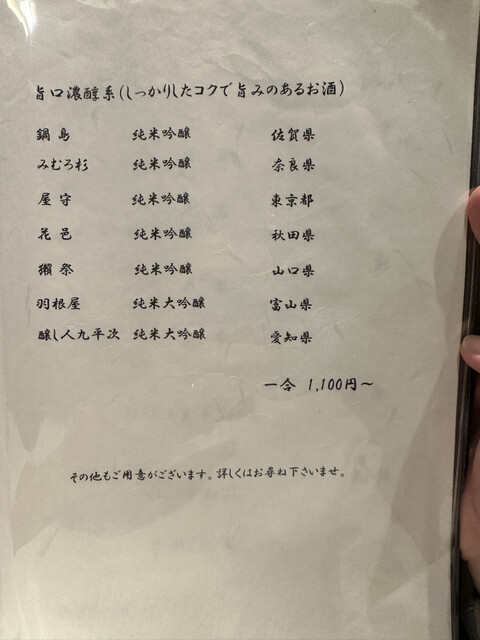 旨口濃醇系(しっかりしたコクで旨みのあるお酒)
鍋島 純米吟醸 佐賀県
みむろ杉 純米吟醸 奈良県
屋守 純米吟醸 東京都
花邑 純米吟醸 秋田県
獺祭 純米吟醸 山口県
羽根屋 純米大吟醸 富山県
醸し人九平次 純米大吟醸 愛知県
一合 1,100円~
その他もご用意がございます。詳しくはお尋ね下さいませ。